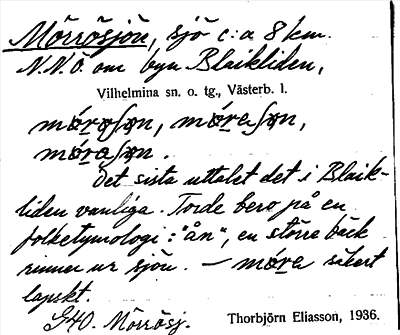 Mörrösjön, sjö c:a 8 km.
N.N.Ö. om byn Blaikliden,
Vilhelmina sn. o. tg., Västerb. l.
Det sista uttalet det i Blaik-
liden vanliga. Torde bero på en
folketymologi: "ån", en större bäck
rinner ur sjön. — möre säkert
lapskt.
GHO. Mörrösj.
Thorbjörn Eliasson, 1936.